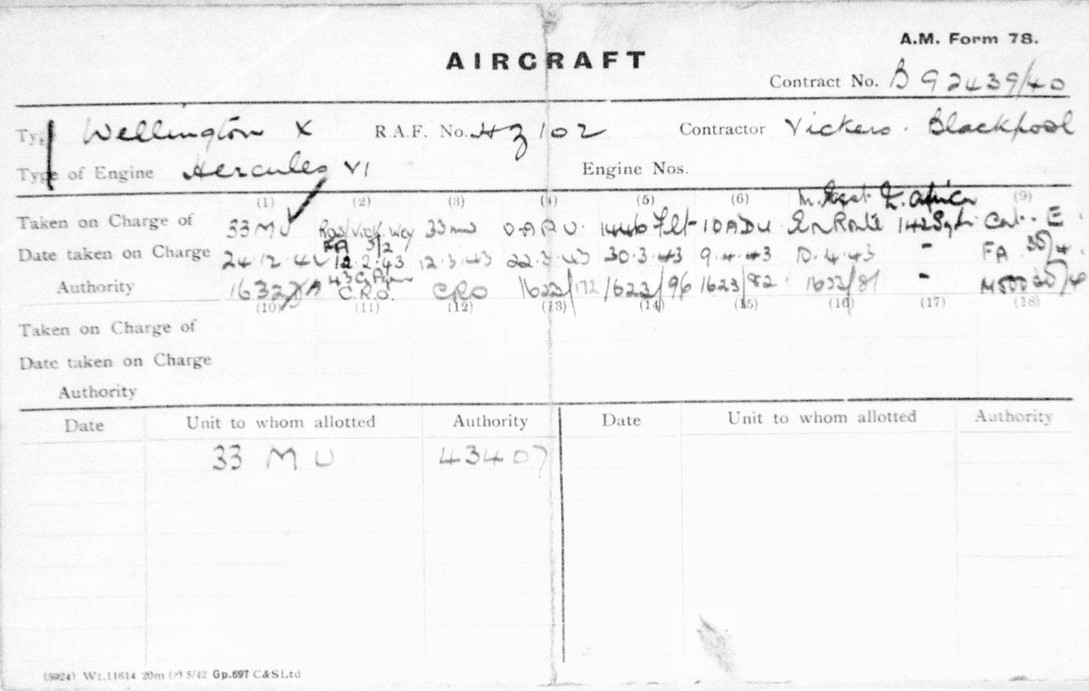 A.M. Form 78.
AIRCRAFT
Contract No. B 92439/40
Type Wellington X R.A.F. No. HZ 102 Contractor Vickers. Blackpool
Type of Engine Hercules VI Engine Nos.
(1) (2) (3) (4) (5) (6) (9)
Taken on Charge of 33 MU ROS Vick. Wey 33 MU O.A.P.U. 1446 Flt 10 ADU En Route N. Africa 142 Sqn Cat. E.
FA 3/2
Date taken on Charge 24.12.42 12.2.43 12.3.43 22.3.43 30.3.43 9.4.43 10.4.43 - FA 30/4
Authority 1632/ C.R.O. CRO 1623/172 1623/96 1623/82 1623/81 -
(10) (11) (12) (13) (14) (15) (16) (17) (18)
Taken on Charge of
Date taken on Charge
Authority
Date Unit to whom allotted Authority Date Unit to whom allotted Authority
33 MU 43407
(5924) Wt.11614 20m 5/42 Gp.697 C&SLtd